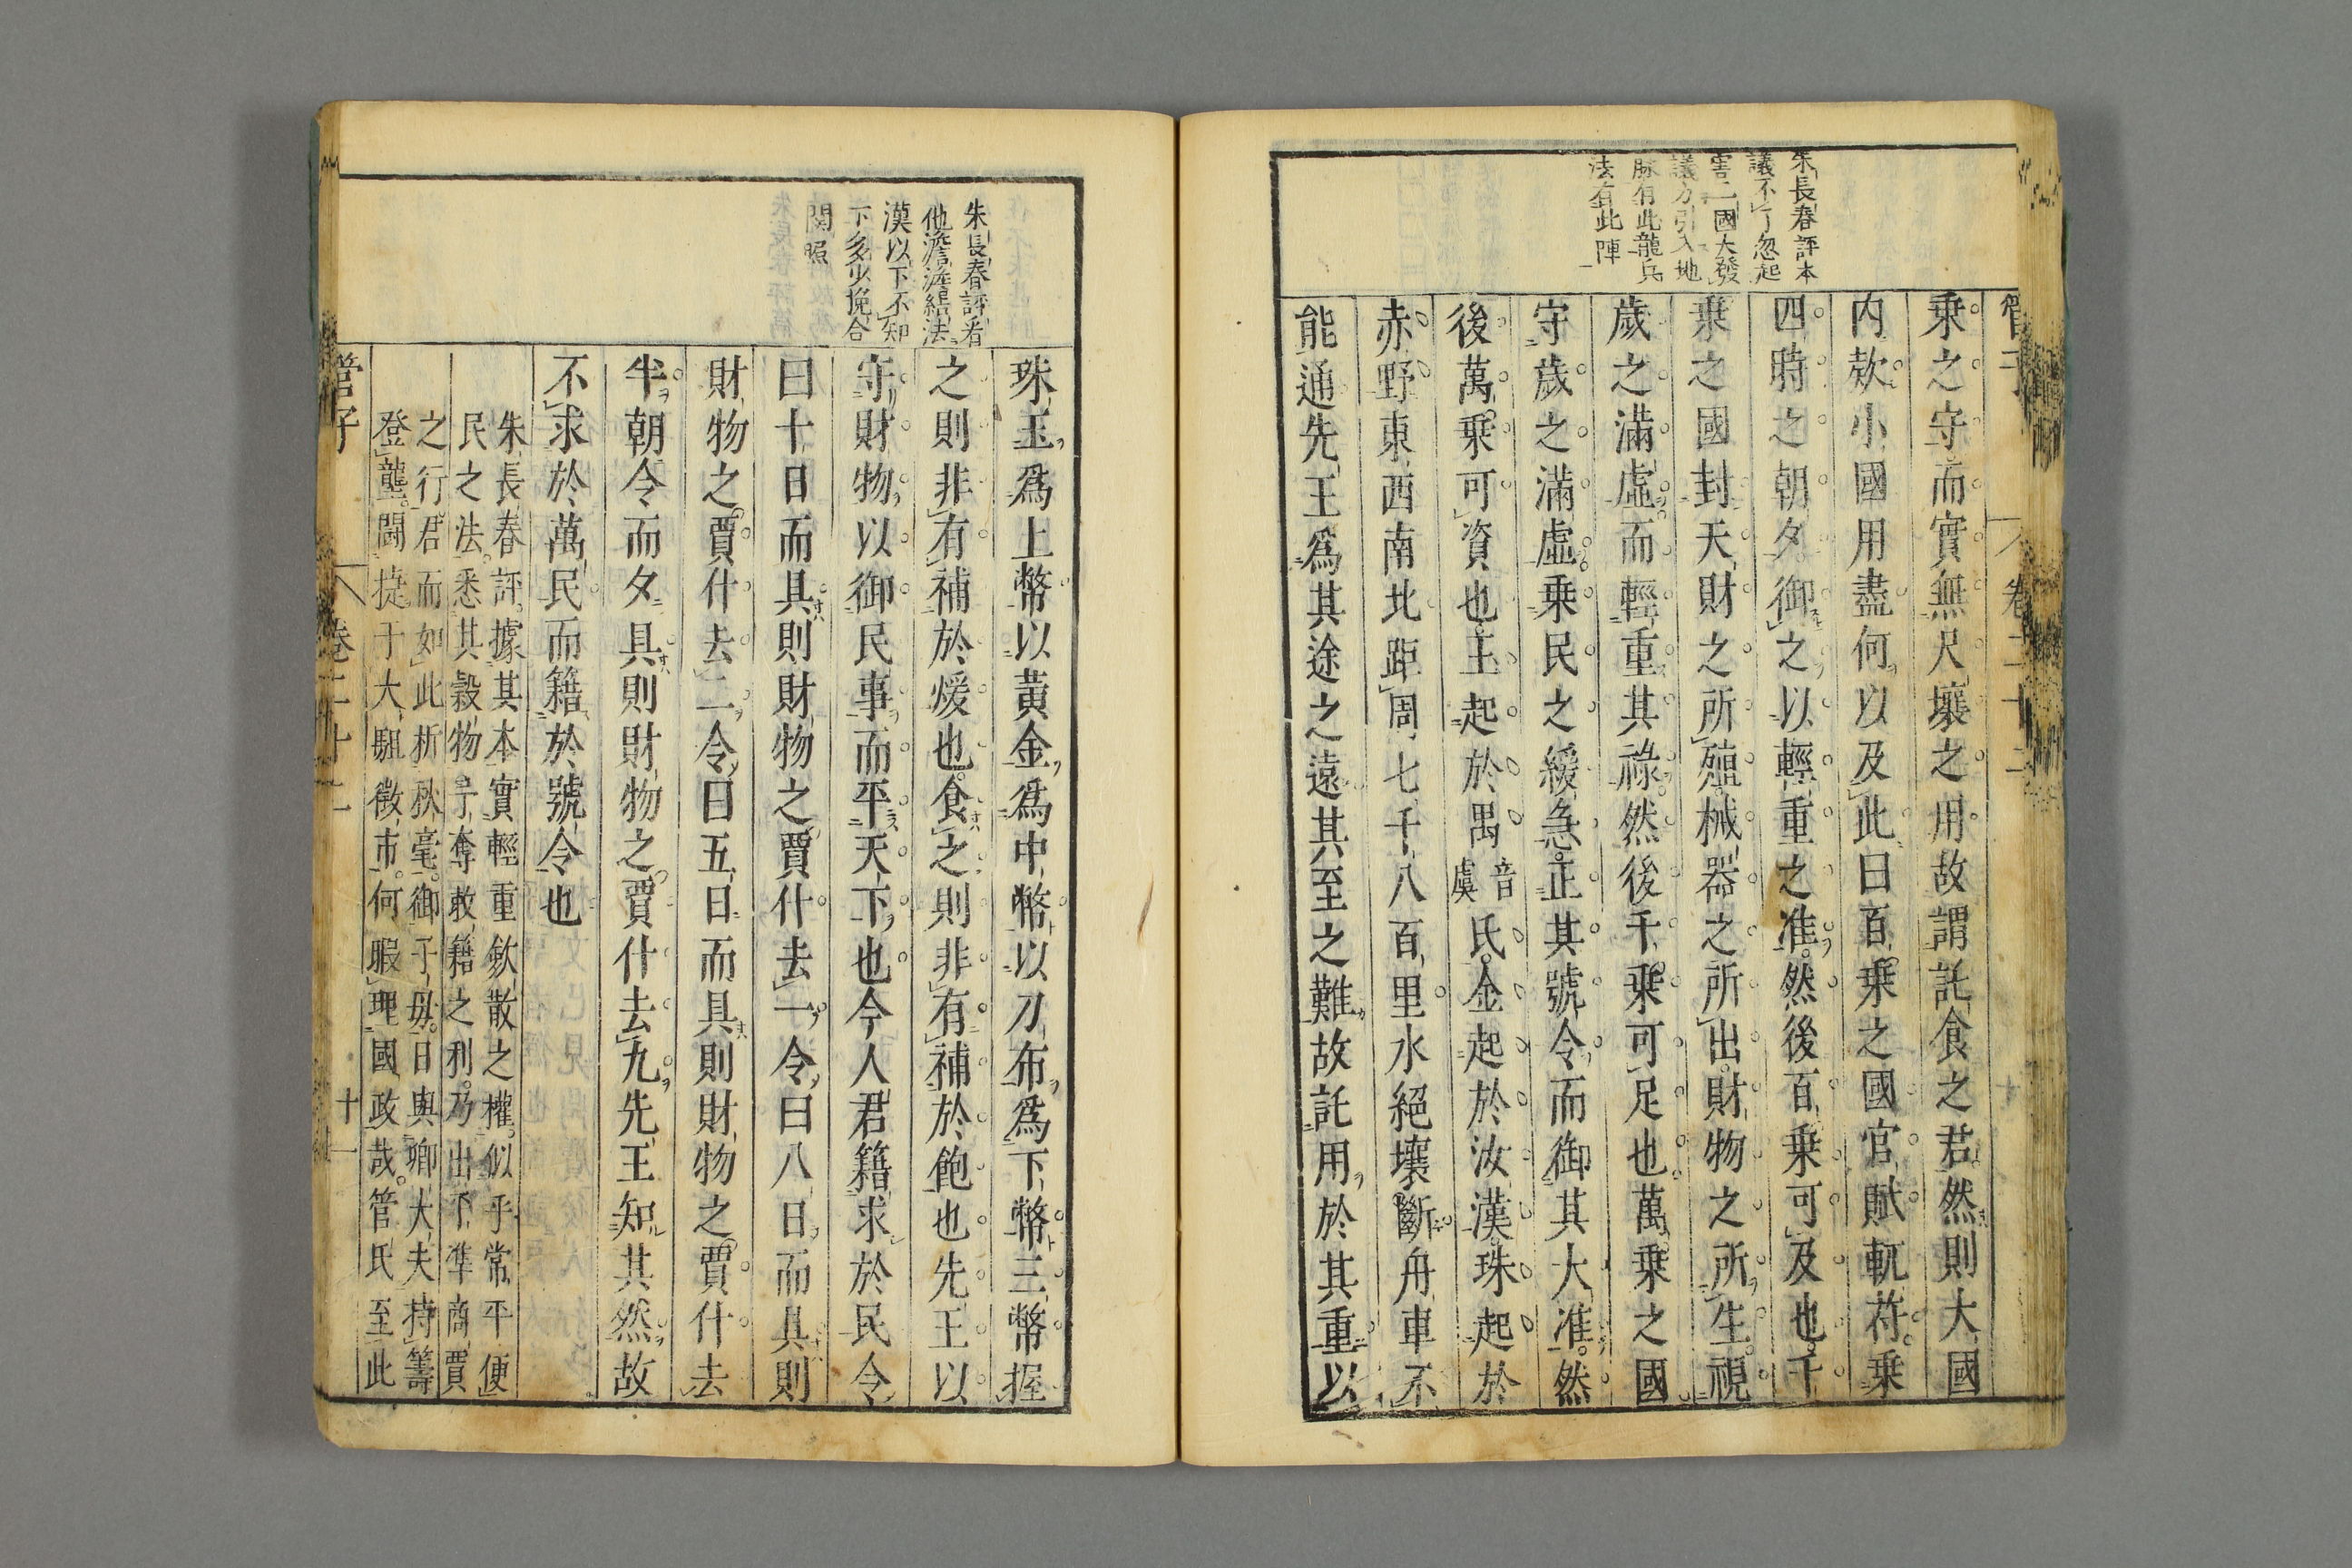 管子
卷二十二
朱長春評本
議不了忽起
害二國大發
議方引入地
脉有此龍兵
法有此陣
乗之守而實無尺壤之用故謂託食之君然則大國
内欵小國用盡何以及此曰百乗之國官賦軌符乗
四時之朝夕御之以輕重之准然後百乗可及也千
乗之國封天財之所殖械器之所出財物之所生視
歲之滿虛而輕重其祿然後千乗可足也萬乗之國
守歲之滿虛乗民之緩急正其號令而御其大准然
後萬乗可資也玉起於禺音虞氏金起於汝漢珠起於
赤野東西南北距周七千八百里水絕壤斷舟車不
能通先王爲其途之遠其至之難故託用於其重以
朱長春評看
他澹澹結法
漠以下不知
下多少挽合
関照
珠玉爲上幣以黄金爲中幣以刀布爲下幣三幣握
之則非有補於煖也食之則非有補於飽也先王以
守財物以御民事而平天下也今人君籍求於民令
曰十日而具則財物之賈什去一令曰八日而具則
財物之賈什去二令曰五日而具則財物之賈什去
半朝令而夕具則財物之賈什去九先王知其然故
不求於萬民而籍於號令也
朱長春評據其本實輕重斂散之權似乎常平便
民之法悉其穀物予奪敢籍之利乃出下準商賈
之行君而如此析秋毫御于毋日與卿大夫持籌
登壟鬪捷于大駔徵市何暇理國政哉管氏至此
管子
卷二十二
十一